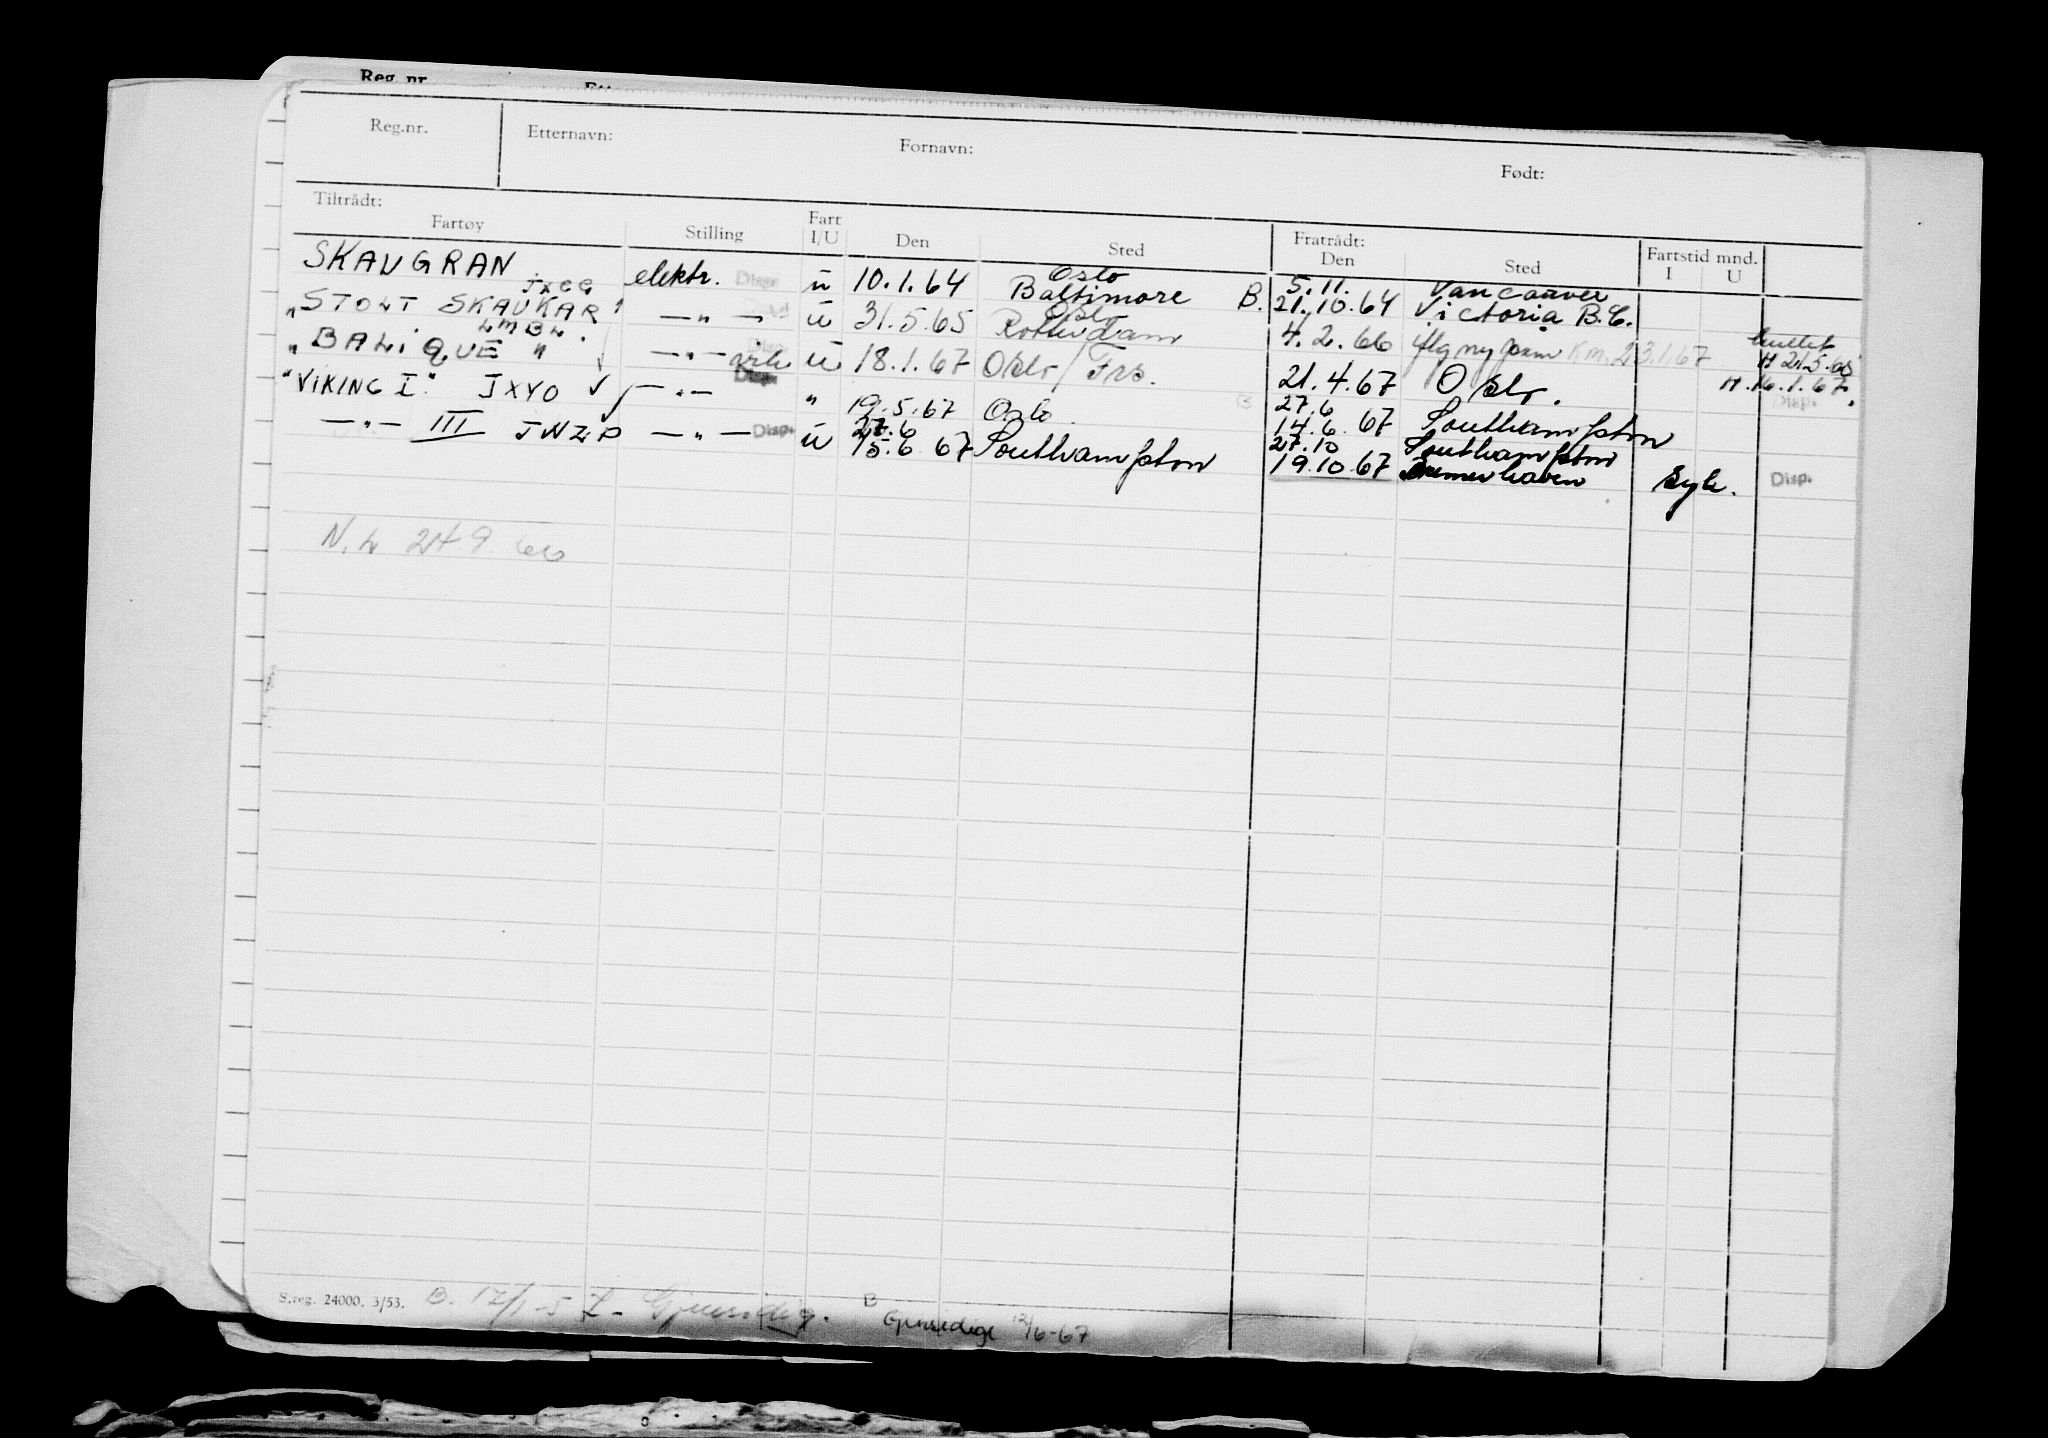 Reg. nr.
Reg.nr. Etternavn: Fornavn: Født:
Tiltrådt: Fratrådt: Fartstid mnd.
Fartøy Stilling Fart I/U Den Sted Den Sted I U
SKAUGRAN elektr. Disp. u 10.1.64 Oslo Baltimore B. 5.11. 21.10.64 Vancouver Victoria B.C.
JXCG
"STOLT SKAUKAR" — " — u 31.5.65 Oslo Rotterdam 4.2.66 Km. 23.1.67 H 21.5.65
LMBL
"BALIQUE" — " — vik u 18.1.67 Oslo/Frs. 21.4.67 Oslo. H. 16.1.67.
"VIKING I." JXYO — " — Disp. " 19.5.67 Oslo B 27.6 14.6.67 Southampton Disp.
— " — III JWZP — " — Disp. u 27.6 15.6.67 Southampton 27.10 19.10.67 Southampton Bremerhaven Syk. Disp.
N.L 249.66
S.reg. 24000. 3/53. B. 17/1-57 - Gjensidig. B Gjensidige 12/6-67